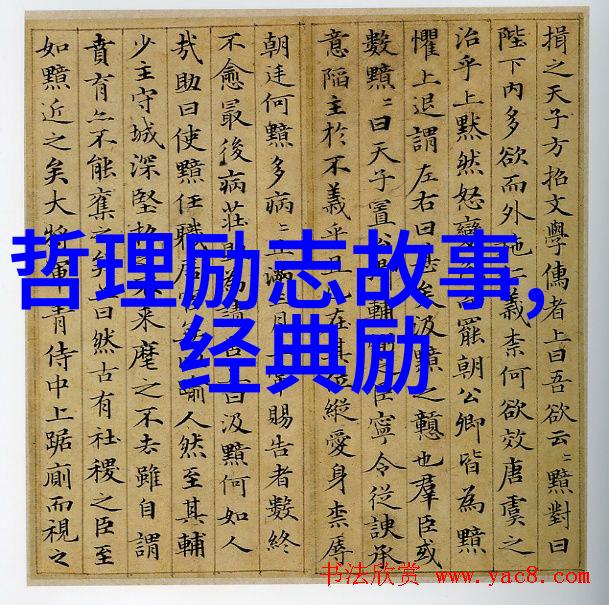 揖之天子方招文學儒者上曰吾欲云〻黯對曰
陛下內多欲而外施仁義柰何欲效唐虞之
治乎上默然怒變罷朝公卿皆為黯
懼上退謂左右曰甚矣汲黯之戇也羣臣或
數黯〻曰天子置公卿輔臣寧令從諛承
意陷主於不義乎且已在其位縱愛身柰辱
朝廷何黯多病〻且滿三月上賜告者數終
不愈最後病莊助為請告上曰汲黯何如人
哉助曰使黯任職居官踰人然至其輔
少主守城深堅招來麾之不去雖自謂
賁育亦不能奪之矣上曰然古有社稷之臣至
如黯近之矣大將軍青侍中上踞廁而視之
哲理励志故事,
经典励
书法欣赏 www.yac8.com